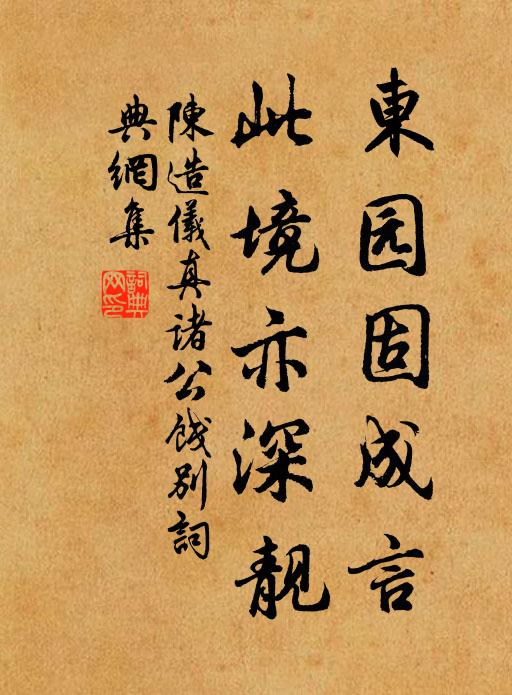 東园固成言
此境亦深靓
陳造儀真诸公饯别詞
典網集
詞典网印